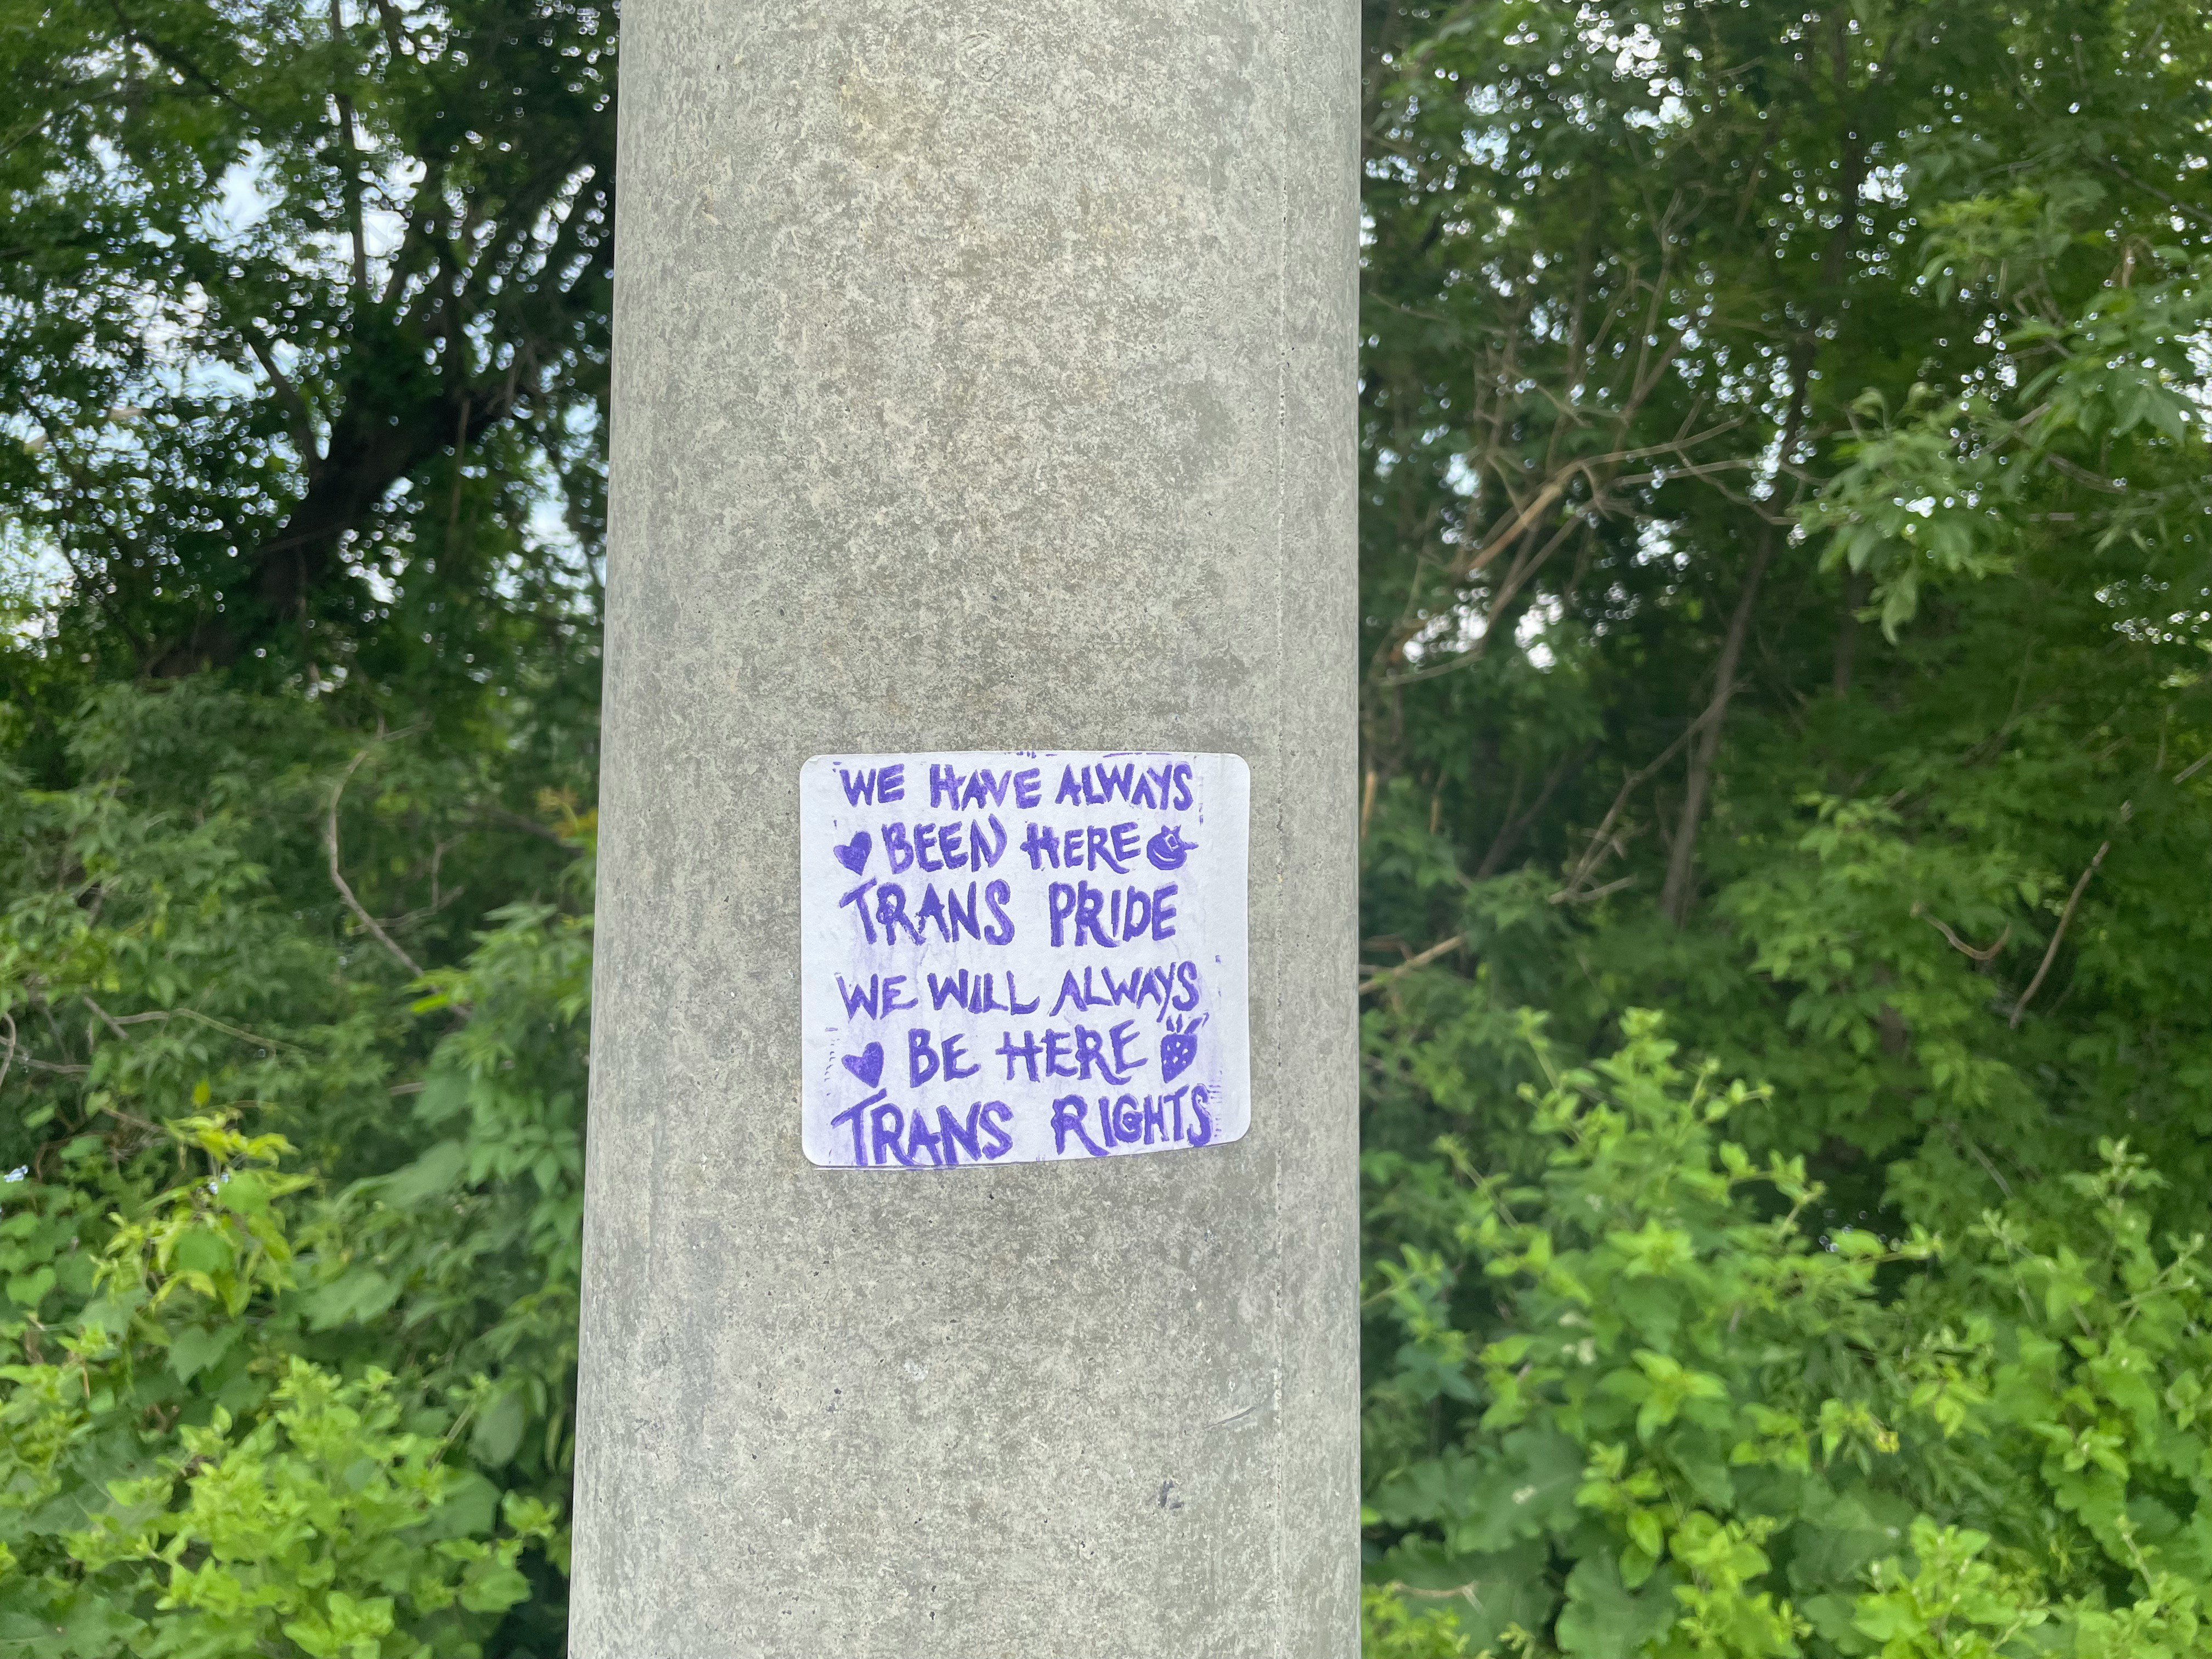 WE HAVE ALWAYS
BEEN HERE
TRANS PRIDE
WE WILL ALWAYS
BE HERE
TRANS RIGHTS